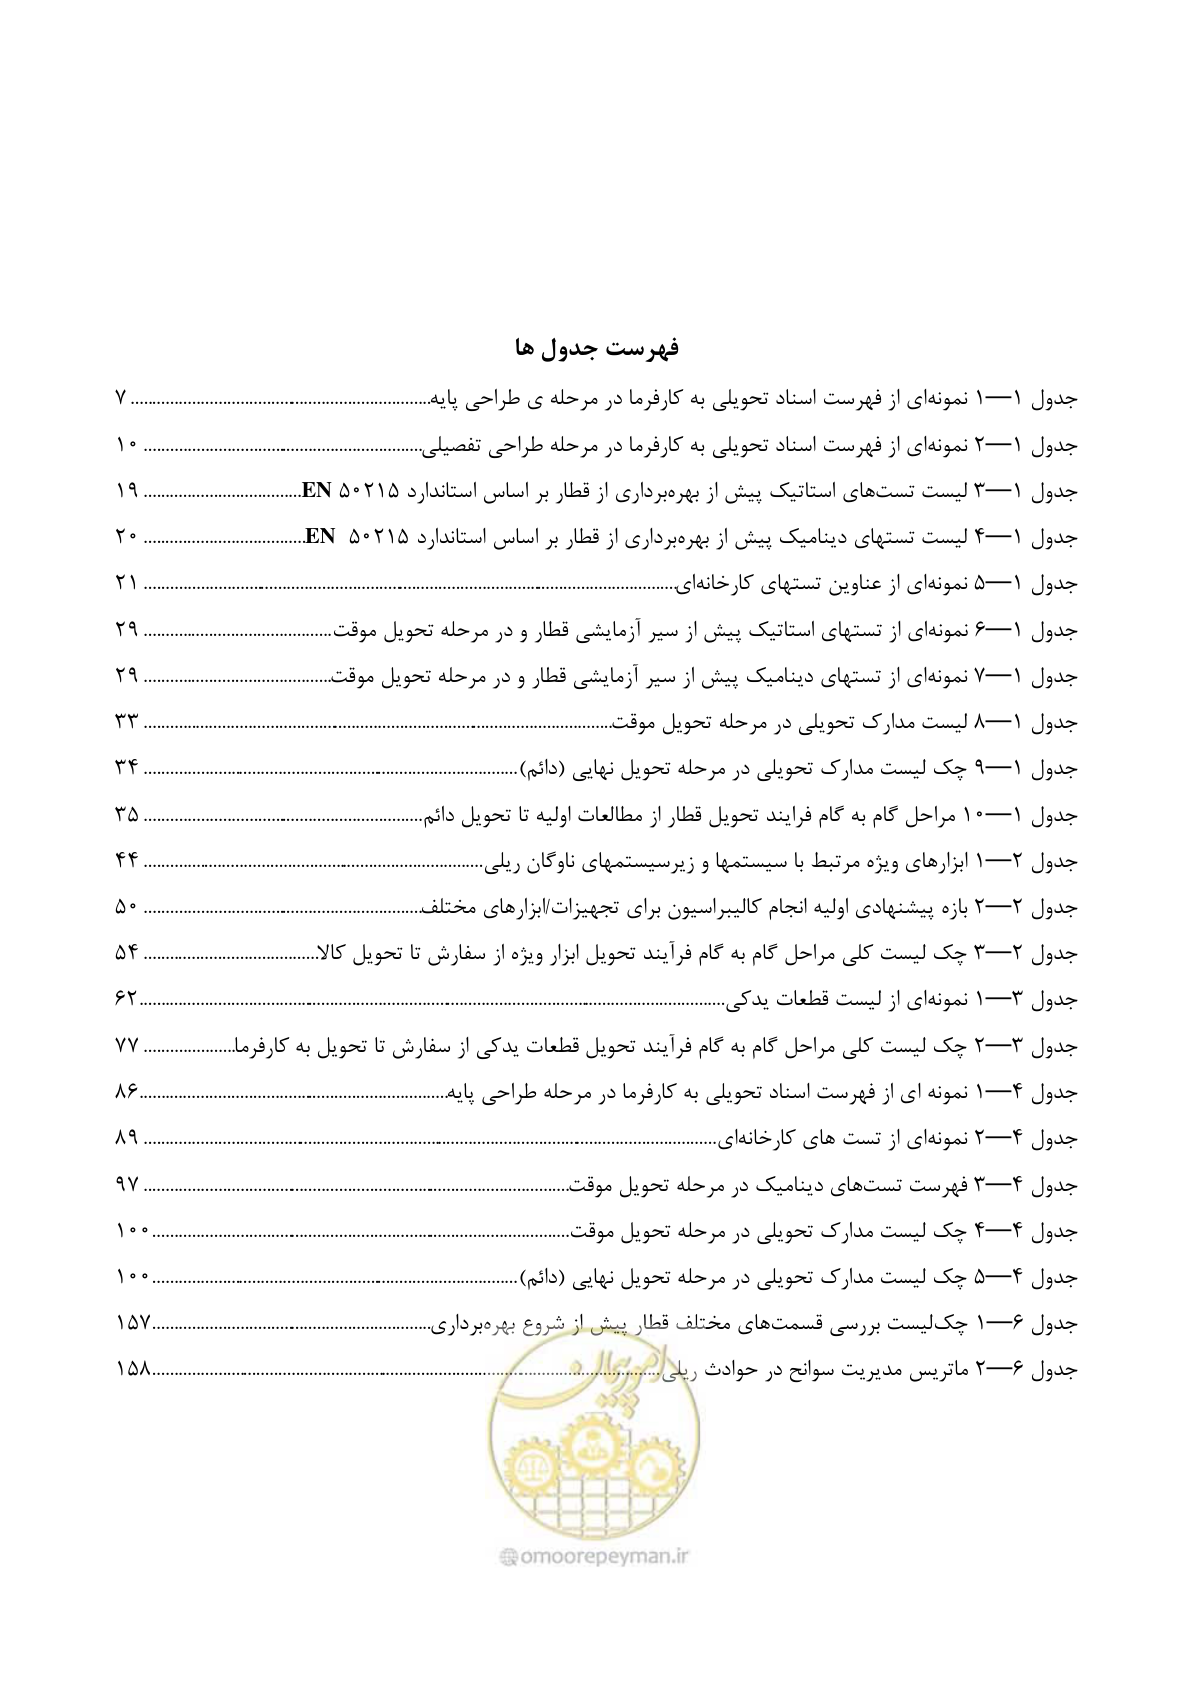 فهرست جدول ها
جدول ۱—۱ نمونه‌ای از فهرست اسناد تحویلی به کارفرما در مرحله ی طراحی پایه ........ ۷
جدول ۱—۲ نمونه‌ای از فهرست اسناد تحویلی به کارفرما در مرحله طراحی تفصیلی ........ ۱۰
جدول ۱—۳ لیست تست‌های استاتیک پیش از بهره‌برداری از قطار بر اساس استاندارد EN ۵۰۲۱۵ ........ ۱۹
جدول ۱—۴ لیست تستهای دینامیک پیش از بهره‌برداری از قطار بر اساس استاندارد EN ۵۰۲۱۵ ........ ۲۰
جدول ۱—۵ نمونه‌ای از عناوین تستهای کارخانه‌ای ........ ۲۱
جدول ۱—۶ نمونه‌ای از تستهای استاتیک پیش از سیر آزمایشی قطار و در مرحله تحویل موقت ........ ۲۹
جدول ۱—۷ نمونه‌ای از تستهای دینامیک پیش از سیر آزمایشی قطار و در مرحله تحویل موقت ........ ۲۹
جدول ۱—۸ لیست مدارک تحویلی در مرحله تحویل موقت ........ ۳۳
جدول ۱—۹ چک لیست مدارک تحویلی در مرحله تحویل نهایی (دائم) ........ ۳۴
جدول ۱—۱۰ مراحل گام به گام فرایند تحویل قطار از مطالعات اولیه تا تحویل دائم ........ ۳۵
جدول ۲—۱ ابزارهای ویژه مرتبط با سیستمها و زیرسیستمهای ناوگان ریلی ........ ۴۴
جدول ۲—۲ بازه پیشنهادی اولیه انجام کالیبراسیون برای تجهیزات/ابزارهای مختلف ........ ۵۰
جدول ۲—۳ چک لیست کلی مراحل گام به گام فرآیند تحویل ابزار ویژه از سفارش تا تحویل کالا ........ ۵۴
جدول ۳—۱ نمونه‌ای از لیست قطعات یدکی ........ ۶۲
جدول ۳—۲ چک لیست کلی مراحل گام به گام فرآیند تحویل قطعات یدکی از سفارش تا تحویل به کارفرما ........ ۷۷
جدول ۴—۱ نمونه ای از فهرست اسناد تحویلی به کارفرما در مرحله طراحی پایه ........ ۸۶
جدول ۴—۲ نمونه‌ای از تست های کارخانه‌ای ........ ۸۹
جدول ۴—۳ فهرست تست‌های دینامیک در مرحله تحویل موقت ........ ۹۷
جدول ۴—۴ چک لیست مدارک تحویلی در مرحله تحویل موقت ........ ۱۰۰
جدول ۴—۵ چک لیست مدارک تحویلی در مرحله تحویل نهایی (دائم) ........ ۱۰۰
جدول ۶—۱ چک‌لیست بررسی قسمت‌های مختلف قطار پیش از شروع بهره‌برداری ........ ۱۵۷
جدول ۶—۲ ماتریس مدیریت سوانح در حوادث ریلی ........ ۱۵۸
امور پیمان
@omoorepeyman.ir